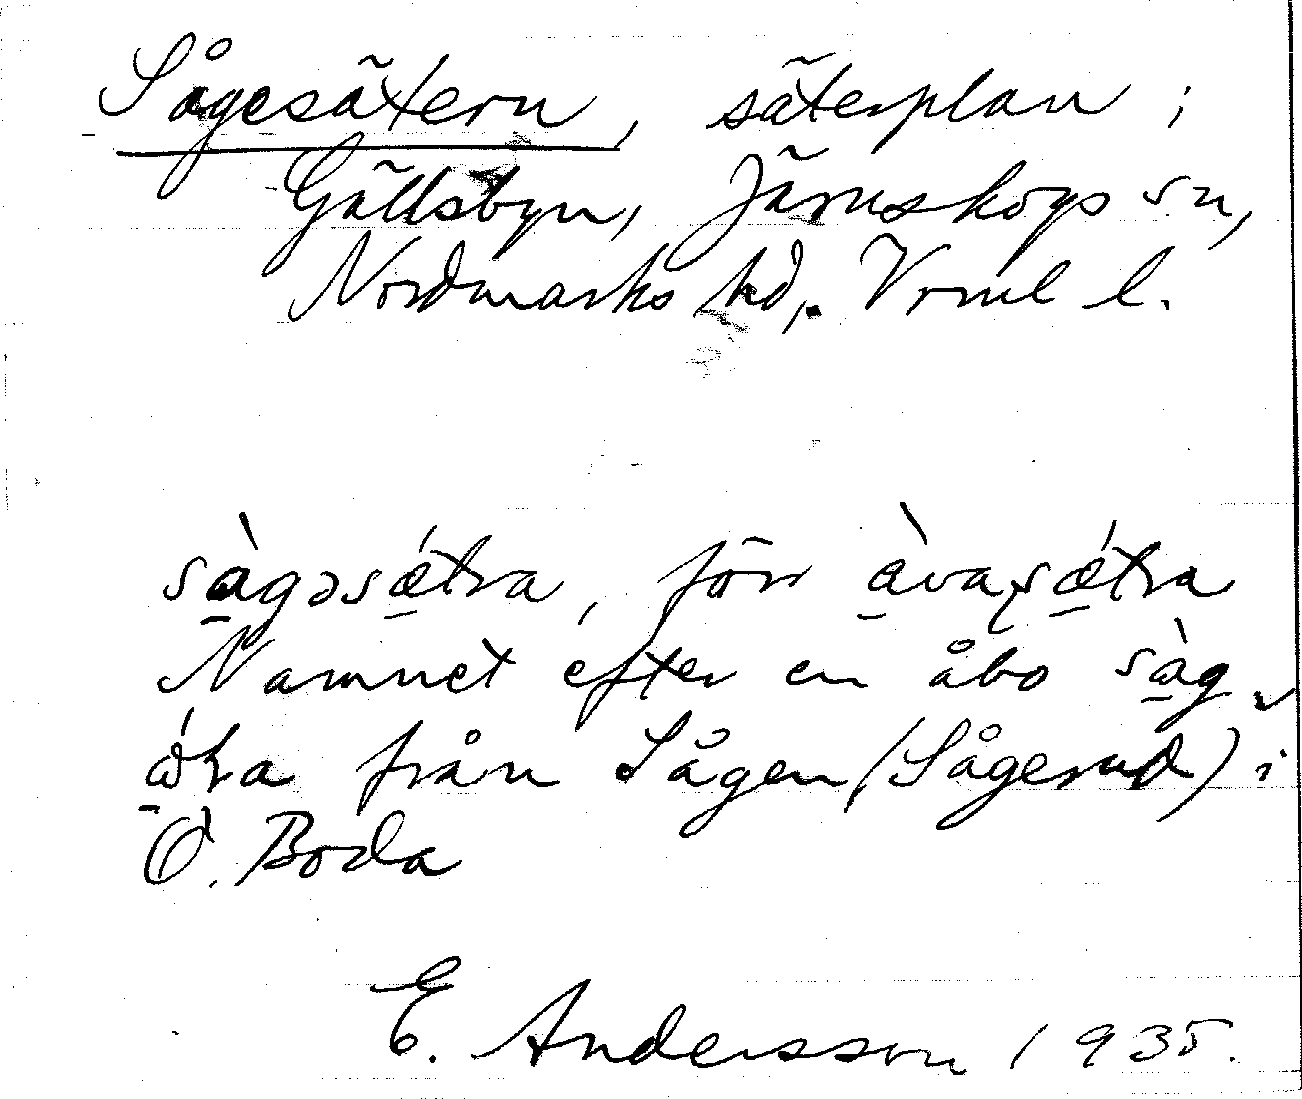 Sågesätern, säterplan i
Gällsbyn, Järnskogs sn,
Nordmarks hd, Vrml l.
sàgəsǽtra, förr àvasǽtra
Namnet efter en åbo sàg
från Sågen (Sågerud) i
Ö. Boda
E. Andersson 1935.